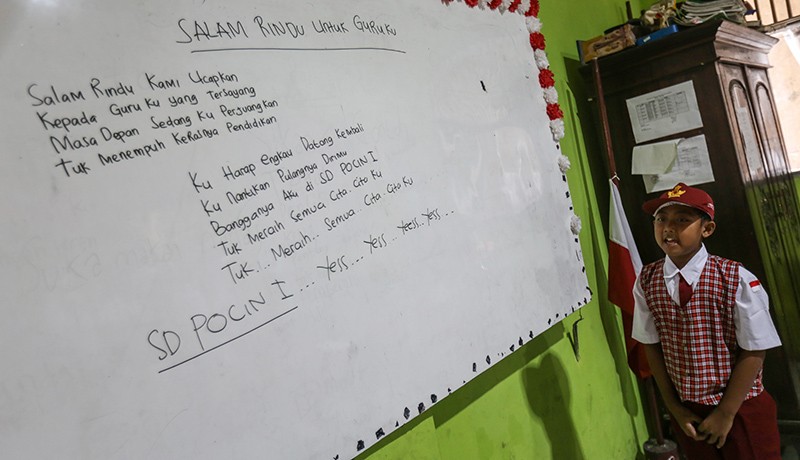 SALAM RINDU UNTUK GURUKU
Salam Rindu Kami Ucapkan
Kepada Guruku yang Tersayang
Masa Depan Sedang Ku Perjuangkan
Tuk Menempuh Kerasnya Pendidikan
Ku Harap Engkau Datang Kembali
Ku Nantikan Pulangnya Dirimu
Bangganya Aku di SD POCIN I
Tuk Meraih Semua Cita-Cita Ku
Tuk... Meraih.. Semua Cita-Cita Ku
SD POCIN I ... Yess... Yess.. Yeess.. Yess...